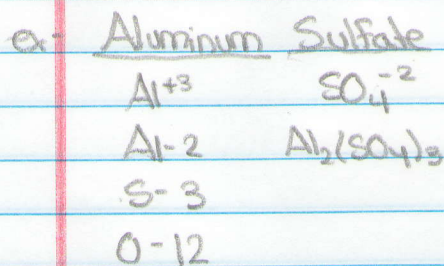 ex- Aluminum Sulfate
Al⁺³ SO₄⁻²
Al-2 Al₂(SO₄)₃
S-3
O-12